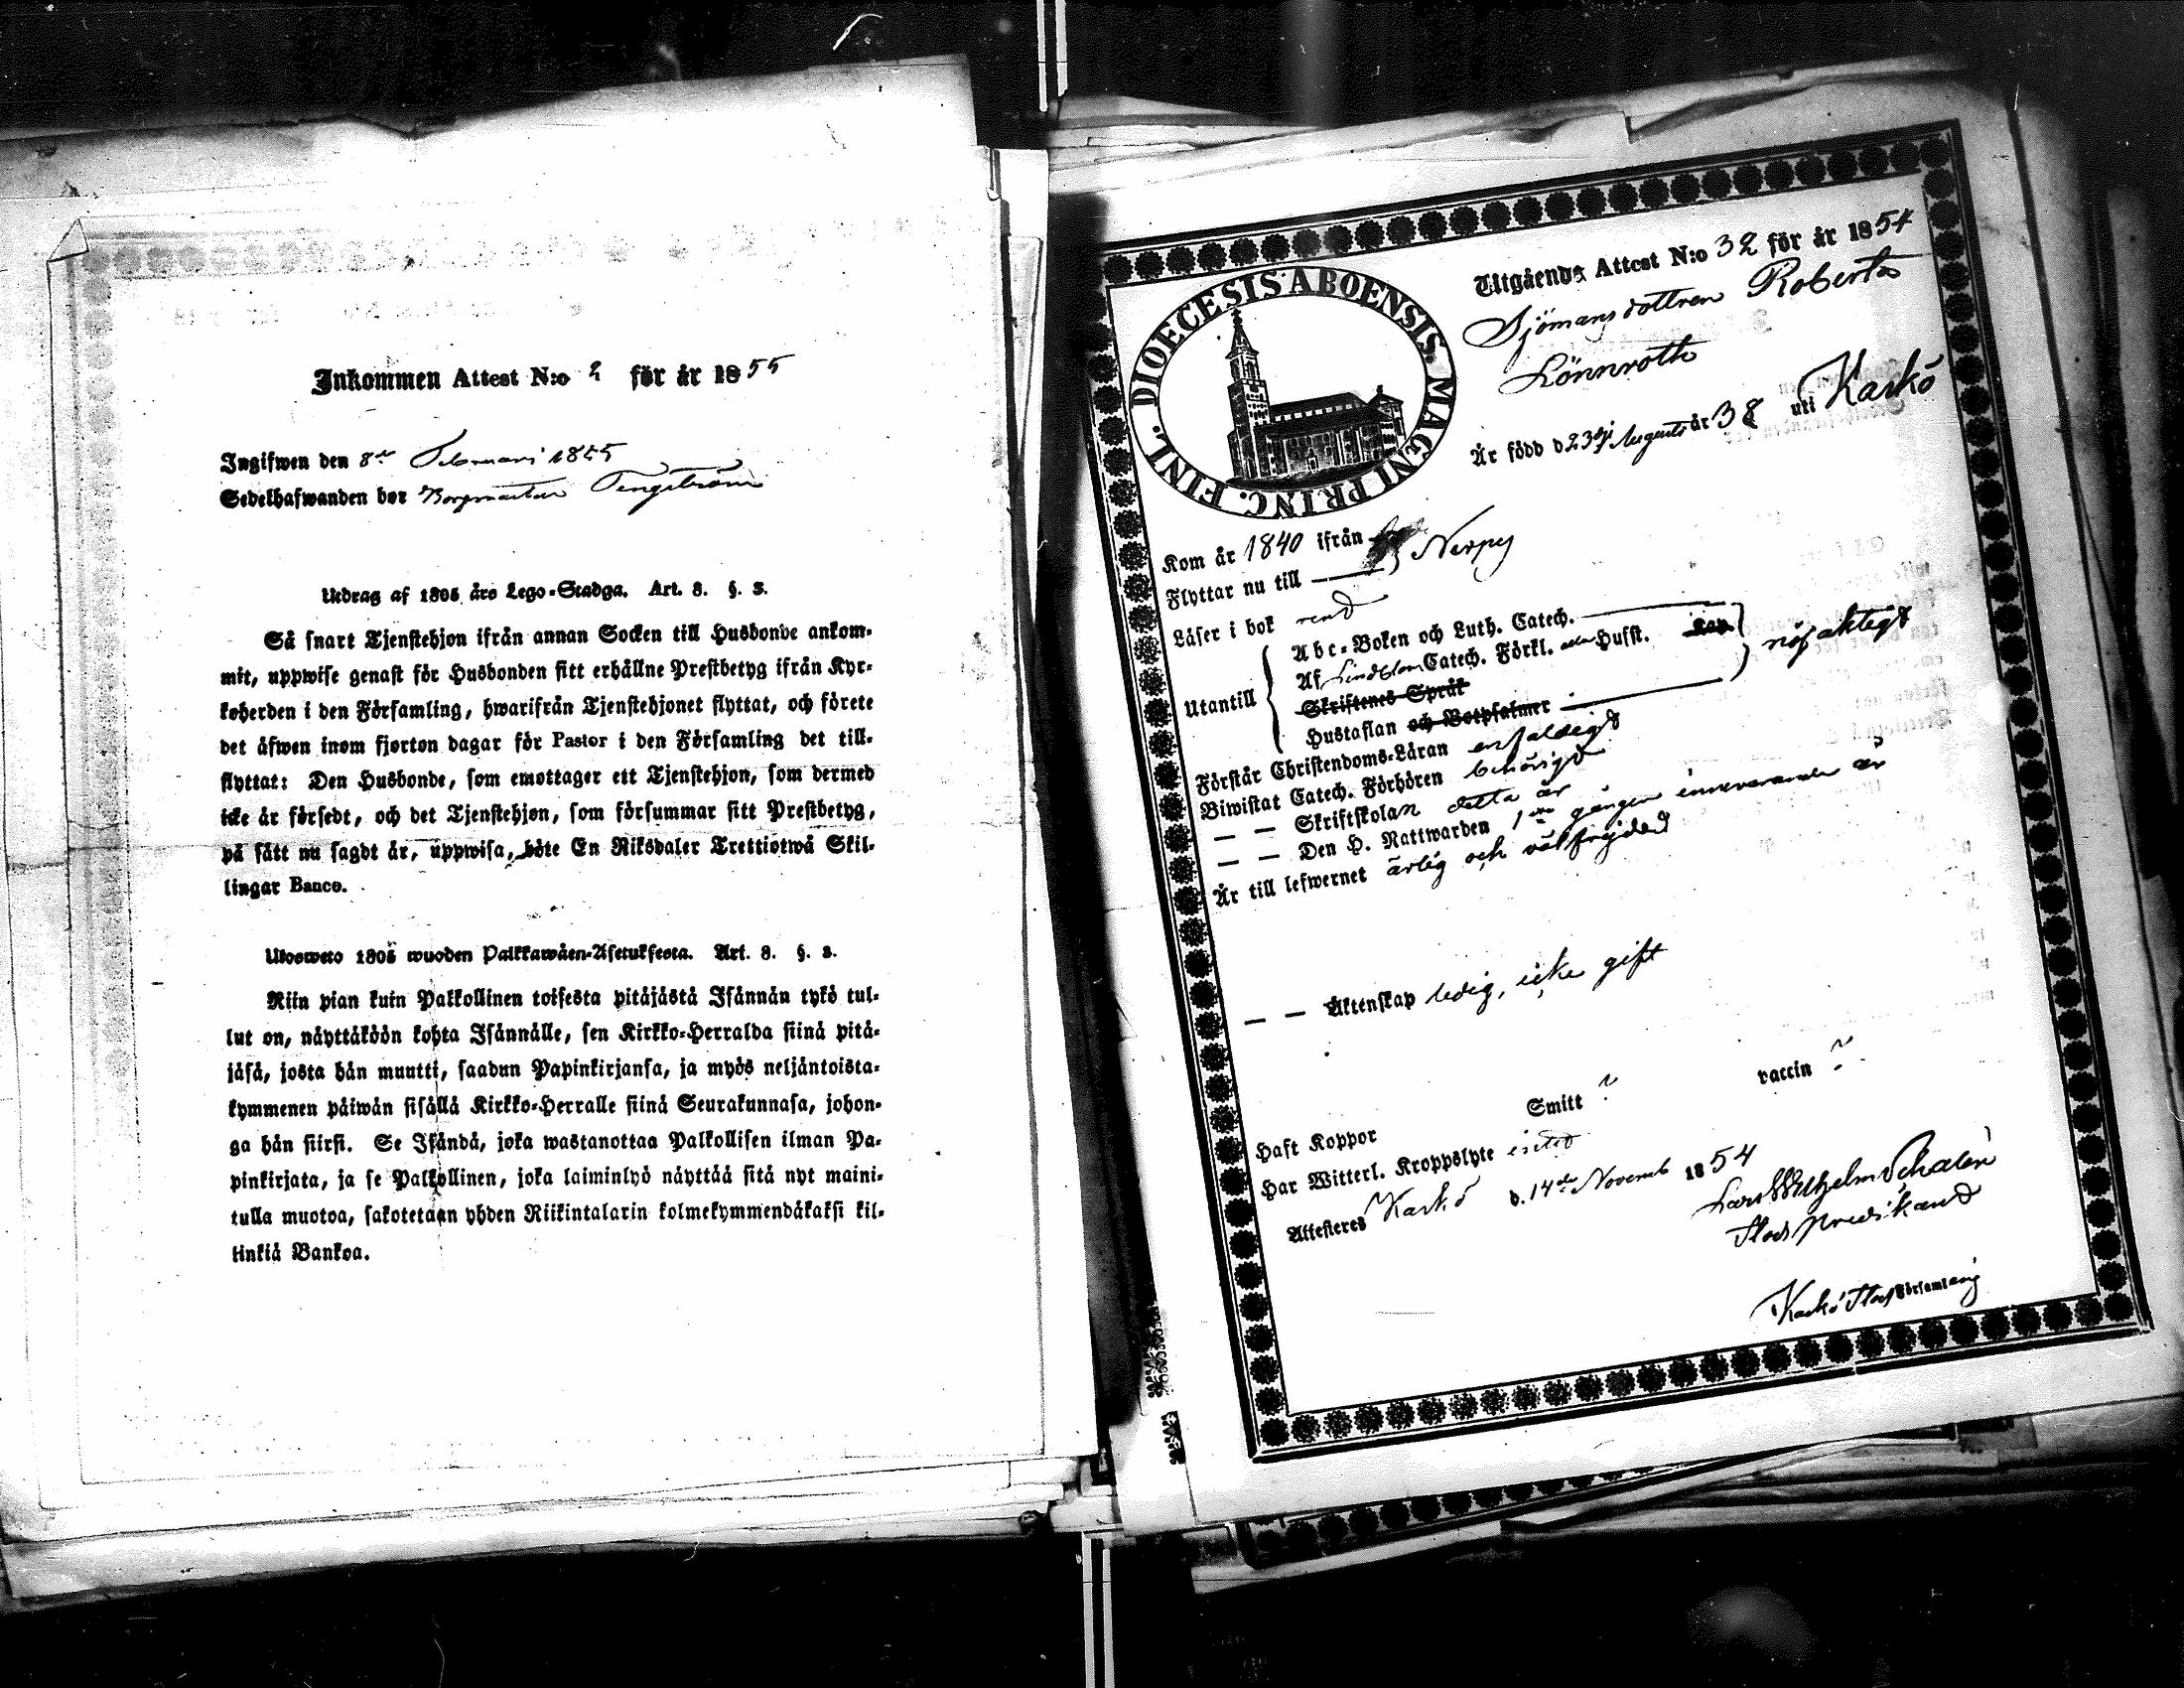 Inkommen Attest N:o 2 för år 1855
Ingifwen den 8de Februari 1855
Sedelhafwanden bor Borgmästar Tengström
Utdrag af 1805 års Lego-Stadga. Art. 8. §. 3.
Så snart Tjenstehjon ifrån annan Socken till Husbonde ankom-
mit, uppwise genast för Husbonden sitt erhållne Prestbetyg ifrån Kyr-
koherden i den Församling, hwarifrån Tjenstehjonet flyttat, och förete
det äfwen inom fjorton dagar för Pastor i den Församling det till-
flyttat: Den Husbonde, som emottager ett Tjenstehjon, som dermed
icke är försedt, och det Tjenstehjon, som försummar sitt Prestbetyg,
på sätt nu sagdt är, uppwisa, böte En Riksdaler Trettiotwå Skil-
lingar Banco.
Ulosweto 1805 wuoden Palkkawäen-Asetuksesta. Art. 8. §. 3.
Niin pian kuin Palkollinen toisesta pitäjästä Isännän tykö tul-
lut on, näyttäköön kohta Isännälle, sen Kirkko-Herralda siinä pitä-
jäsä, josta hän muutti, saadun Papinkirjansa, ja myös neljäntoista-
kymmenen päiwän sisällä Kirkko-Herralle siinä Seurakunnasa, johon-
ga hän siirsi. Se Isändä, joka wastanottaa Palkollisen ilman Pa-
pinkirjata, ja se Palkollinen, joka laiminlyö näyttää sitä nyt maini-
tulla muotoa, sakotetaan yhden Riikintalarin kolmekymmendäkaksi kil-
linkiä Bankoa.
DIOECESIS ABOENSIS MAGNI PRINC. FINL.
Utgående Attest N:o 32 för år 1854
Sjömans dottren Roberta
Lönnroth
Är född d 23dj Augusti år 38 uti Kaskö
Kom år 1840 ifrån
Flyttar nu till } Nerpes
Läser i bok rend
Utantill
Abc-Boken och Luth. Catech.
Af Lindblom Catech. Förkl. Hufst. Cap. nöjaktigt
Skriftenes Språk
Hustaflan och Botpsalmer
Förstår Christendoms-Läran enfaldigt
Biwistat Catech. Förhören behörigt
— — Skriftskolan detta år
— — Den H. Nattwarden 1sta gången innevarande år
Är till lefwernet ärlig och välfrejdad
— — Äktenskap ledig, icke gift
Haft Koppor Smitt ~ vaccin ~
Har Witterl. Kroppslyte intet
Attesteres Kaskö d. 14de Novemb 1854
Lars Wilhelm Schalin
Stads predikand
Kaskö Stads Församling